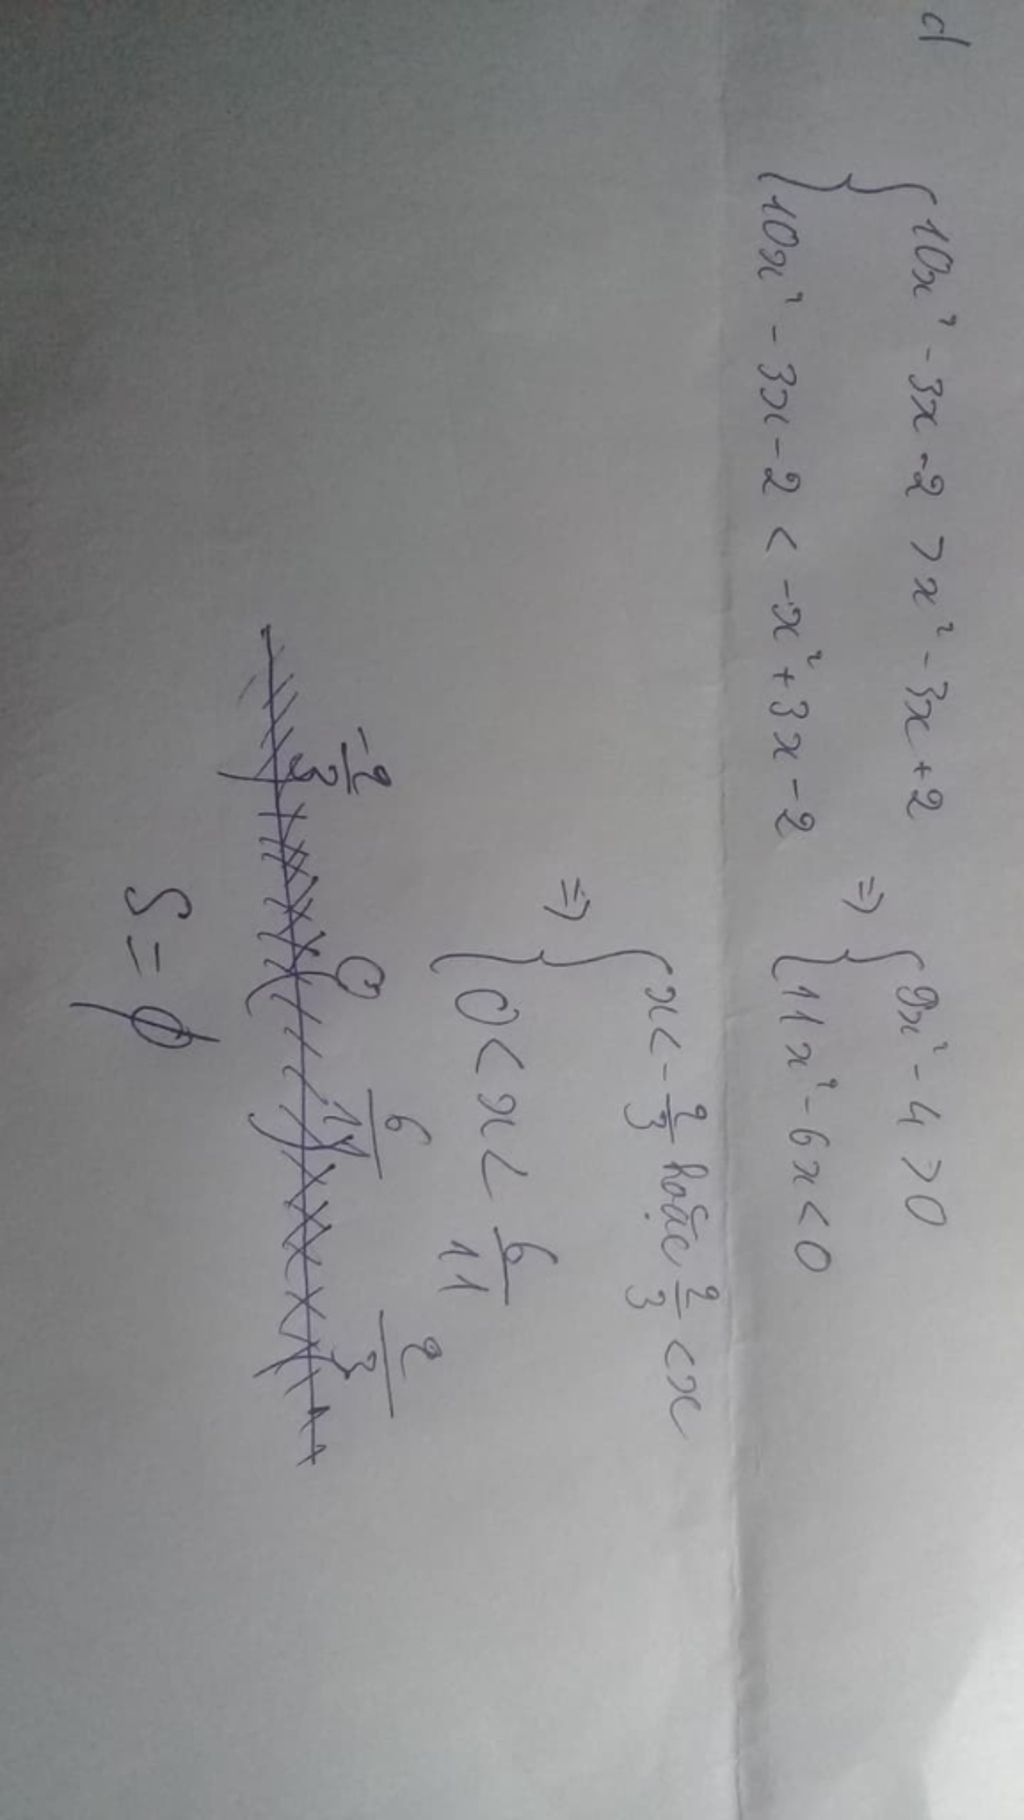 d
{10x² - 3x - 2 > x² - 3x + 2
{10x² - 3x - 2 < -x² + 3x - 2
=> {9x² - 4 > 0
{11x² - 6x < 0
=> {x < -2/3 hoặc 2/3 < x
{0 < x < 6/11
-2/3 0 6/11 2/3
S = ∅